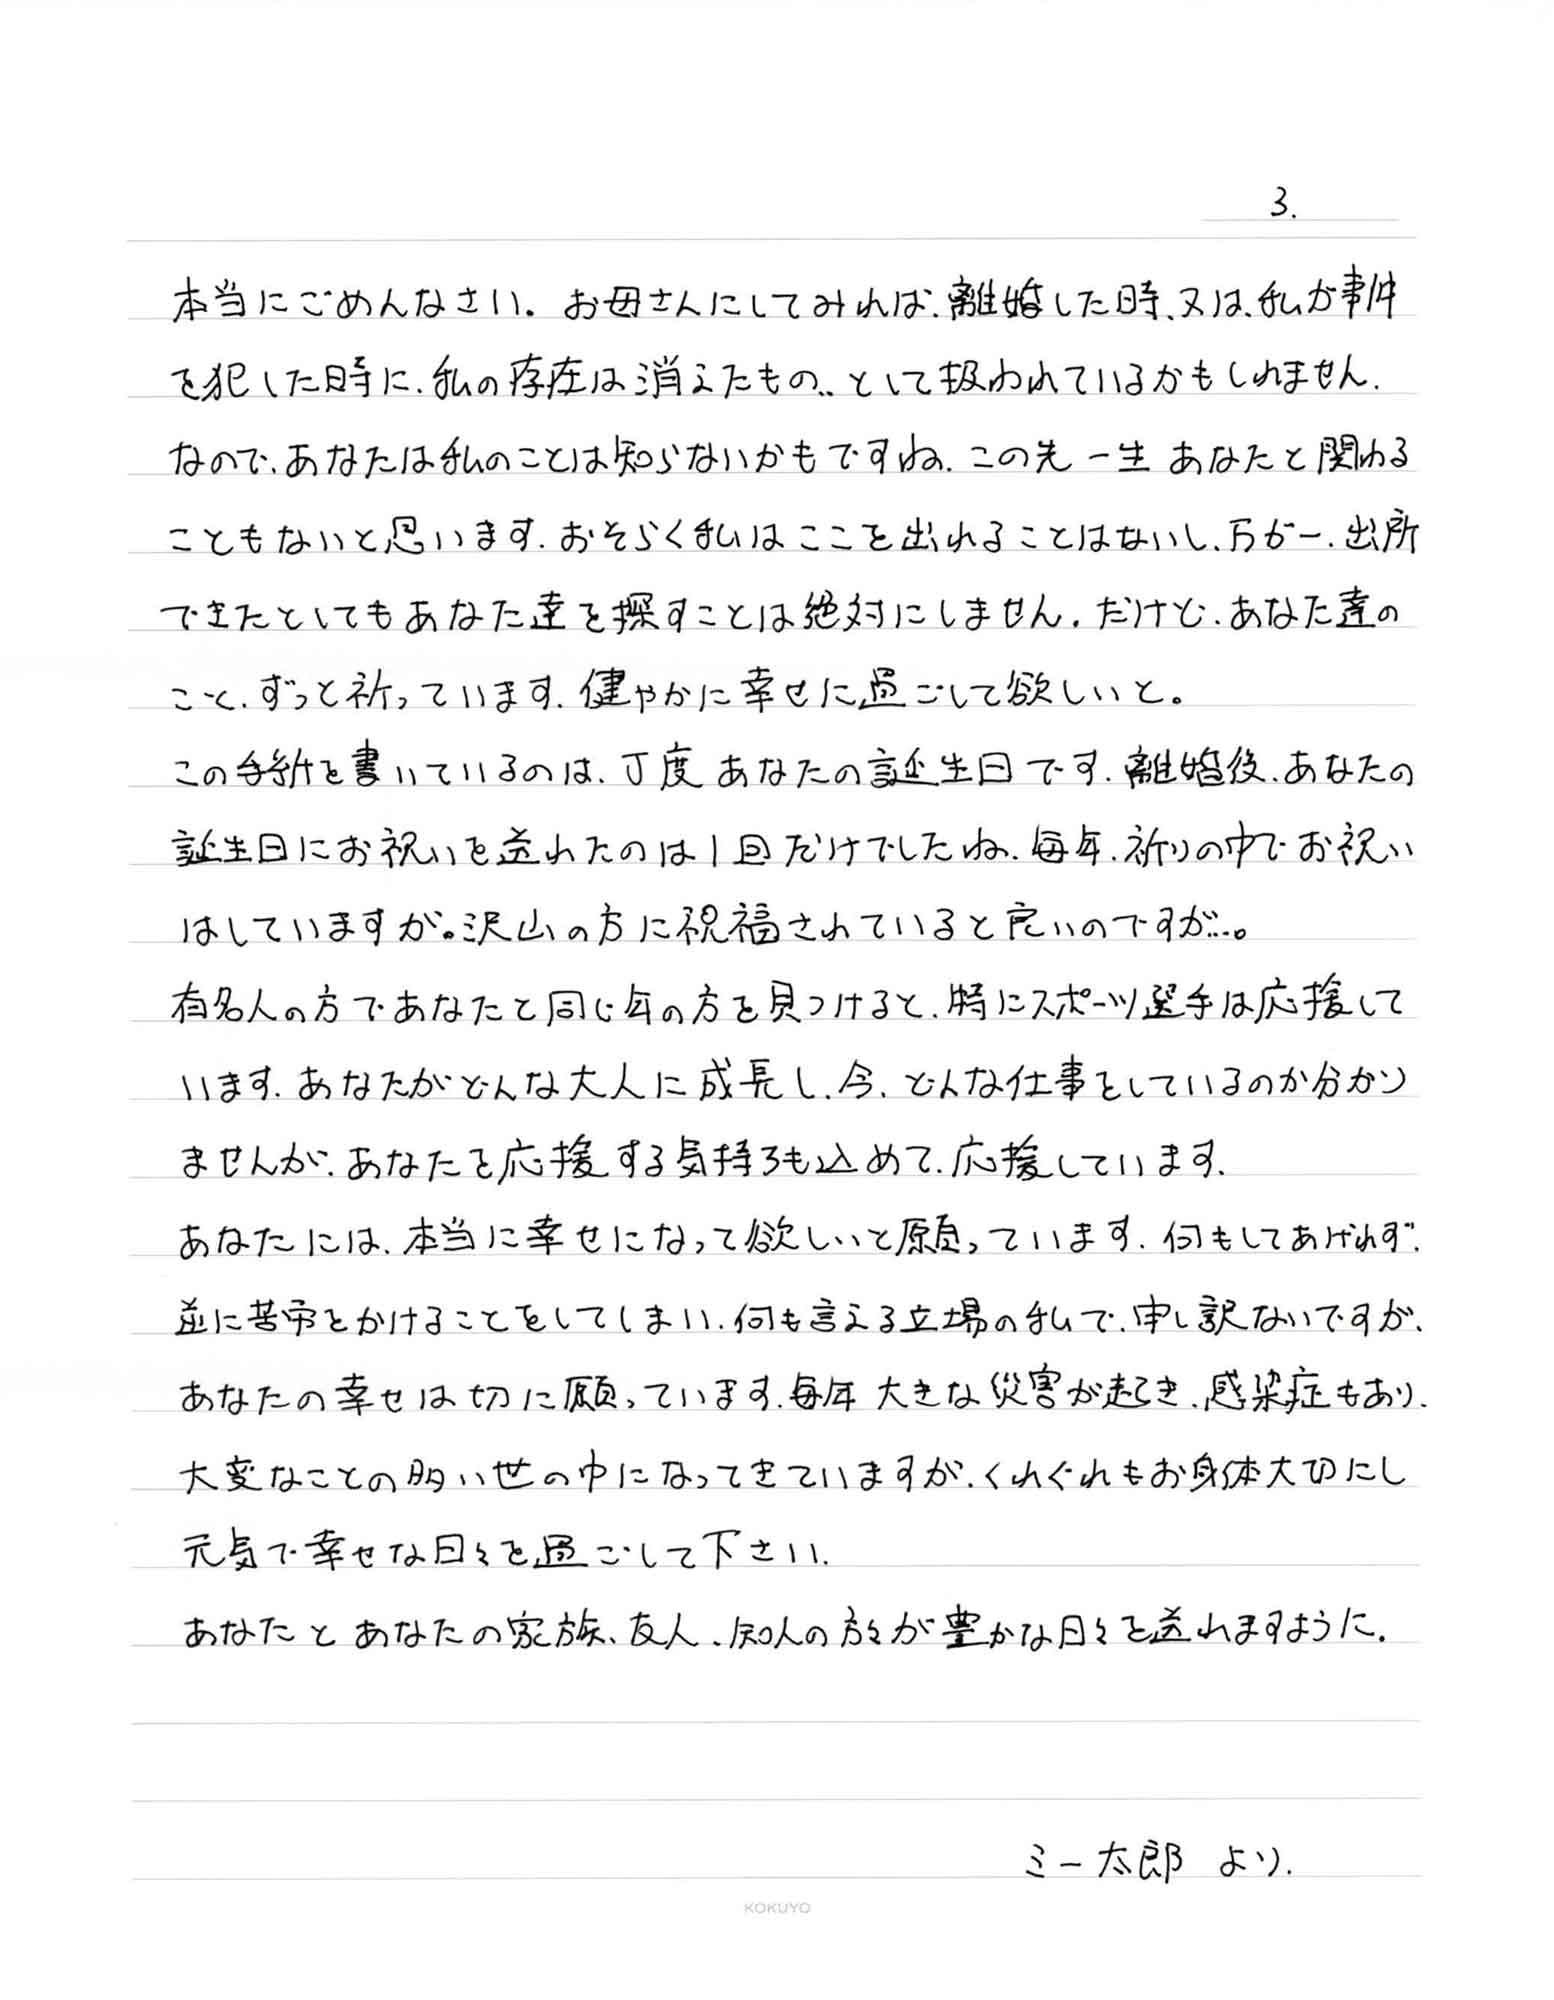 3.
本当にごめんなさい。お母さんにしてみれば、離婚した時、又は、私が事件
を犯した時に、私の存在は消えたもの、、として扱われているかもしれません、
なので、あなたは私のことは知らないかもですね、この先一生 あなたと関わる
こともないと思います、おそらく私はここを出れることはないし、万が一、出所
できたとしてもあなた達を探すことは絶対にしません、だけど、あなた達の
こと、ずっと祈っています、健やかに幸せに過ごして欲しいと。
この手紙を書いているのは、丁度 あなたの誕生日です、離婚後、あなたの
誕生日にお祝いを送れたのは1回だけでしたね、毎年、祈りの中でお祝い
はしていますが。沢山の方に祝福されていると良いのですが…。
有名人の方であなたと同じ年の方を見つけると、特にスポーツ選手は応援して
います、あなたがどんな大人に成長し、今、どんな仕事をしているのか分かり
ませんが、あなたを応援する気持ちも込めて、応援しています、
あなたには、本当に幸せになって欲しいと願っています、何もしてあげれず、
逆に苦労をかけることをしてしまい、何も言える立場の私で、申し訳ないですが、
あなたの幸せは切に願っています、毎年 大きな災害が起き、感染症もあり、
大変なことの多い世の中になってきていますが、くれぐれもお身体大切にし
元気で幸せな日々を過ごして下さい、
あなたと あなたの家族、友人、知人の方々が豊かな日々を送れますように、
ミー太郎 より、
KOKUYO